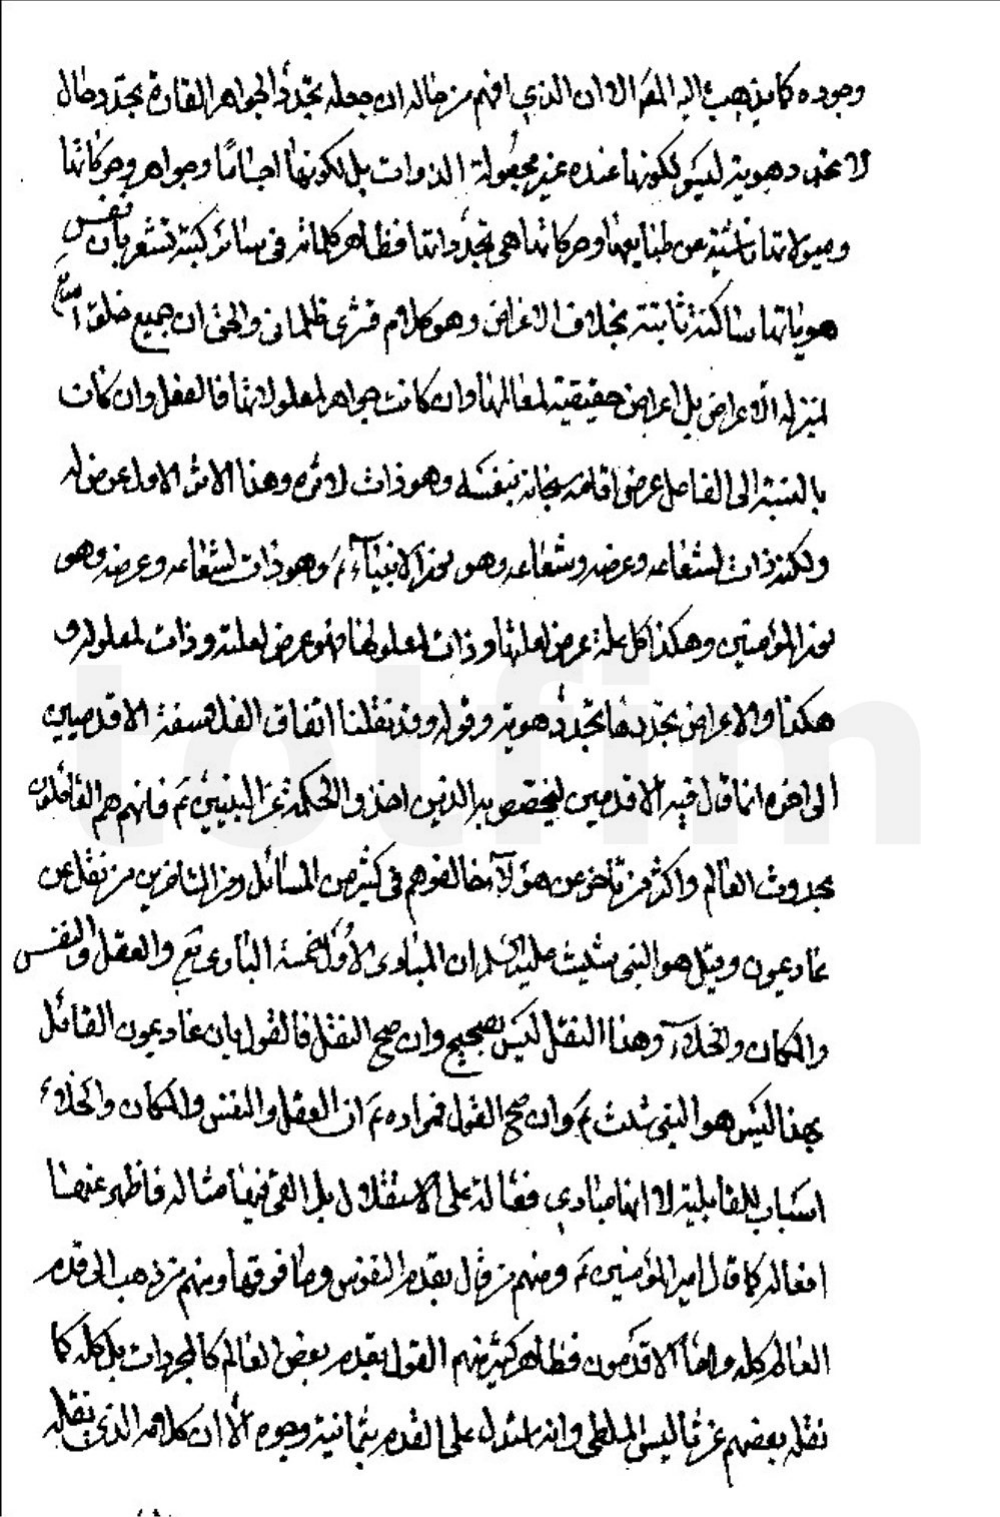 وجوده كما يذهب اليه المص الا ان الذي افهم من حاله ان جعله تجدد الجواهر القارة بتجدد حال
لا تجدد هوية ليس لكونها عنده غير مجعولة الذوات بل لكونها اجسامًا وجواهر وحركاتها
وميولاتها ناشئة عن طبايعها وحركاتها هي تجدداتها فظاهر كلماته في سائر كتبه تشعر بان نفس
هوياتها ساكنة ثابتة بخلاف الاعراض وهو كلام قشري ظلماني والحق ان جميع خلق الله
بمنزلة الاعراض بل اعراض حقيقية لعللها وان كانت جواهر لمعلولاتها فالعقل وان كان
بالنسبة الى الفاعل عرض اقامه سبحانه بنفسه وهو ذات لاثره وهذا الاثر الاول عرض له
ولكنه ذات لشعاعه وعرضه وشعاعه وهو نور الانبياء ع وهو ذات لشعاعه وعرضه وهو
نور المؤمنين وهكذا كل علة عرض لعلتها وذات لمعلولها فهو عرض لعلته وذات لمعلوله و
هكذا والاعراض تجددها تجدد هوية وقوله وقد نقلنا اتفاق الفلاسفة الاقدمين
الى اخره انما قال فيه الاقدمين ليخصص به الذين اخذوا الحكمة عن النبيين ع فانهم هم القائلون
بحدوث العالم واكثر من تأخر عن هؤلاء خالفوهم في كثير من المسائل ومن المتاخرين من نقل عن
غاديمون وقيل هو النبي شيث عليه السلم ان المبادي الأول خمسة الباري تع والعقل والنفس
والمكان والخلاء وهذا النقل ليس بصحيح وان صح النقل فالقول بان غاديمون القائل
بهذا ليس هو النبي شيث ع وان صح القول فمراده ع ان العقل والنفس والمكان والخلاء
اسباب للقابلية لا انها مبادي فعالة على الاستقلال بل القى فيها مثاله فاظهر عنها
افعاله كما قال امير المؤمنين ع ومنهم من قال بقدم النفوس وما فوقها ومنهم من ذهب الى قدم
العالم كله واما الاقدمون فظاهر كثير منهم القول بقدم بعض العالم كالمجردات بل كله كما
نقله بعضهم عن ثاليس الملطي وانه استدل على القدم بثمانية وجوه الا ان كلامه الذي نقله